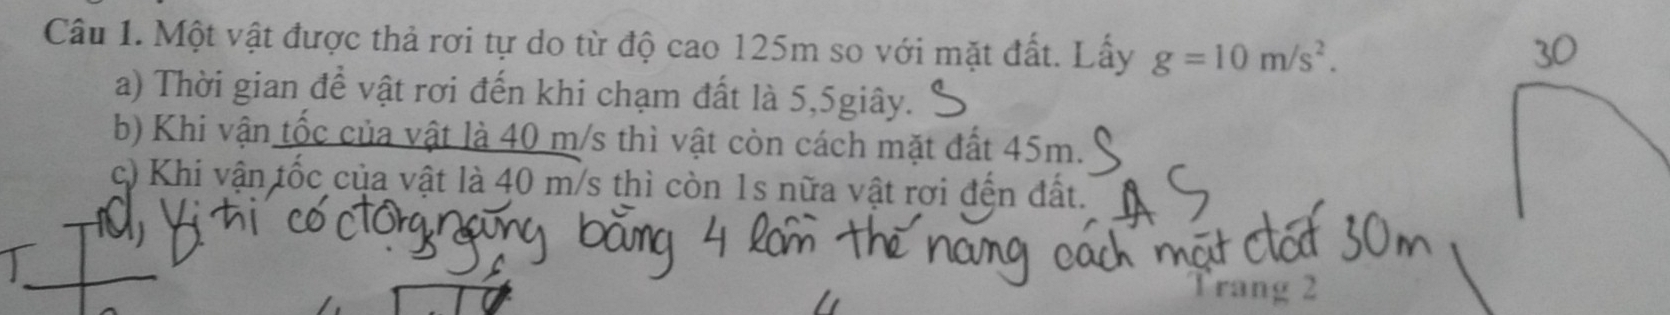 Câu 1. Một vật được thả rơi tự do từ độ cao 125m so với mặt đất. Lấy g = 10 m/s².
30
a) Thời gian để vật rơi đến khi chạm đất là 5,5giây. S
b) Khi vận tốc của vật là 40 m/s thì vật còn cách mặt đất 45m. S
c) Khi vận tốc của vật là 40 m/s thì còn 1s nữa vật rơi đến đất. S
d, Vị trí có động năng bằng 4 lần thế năng cách mặt đất 30m
Trang 2